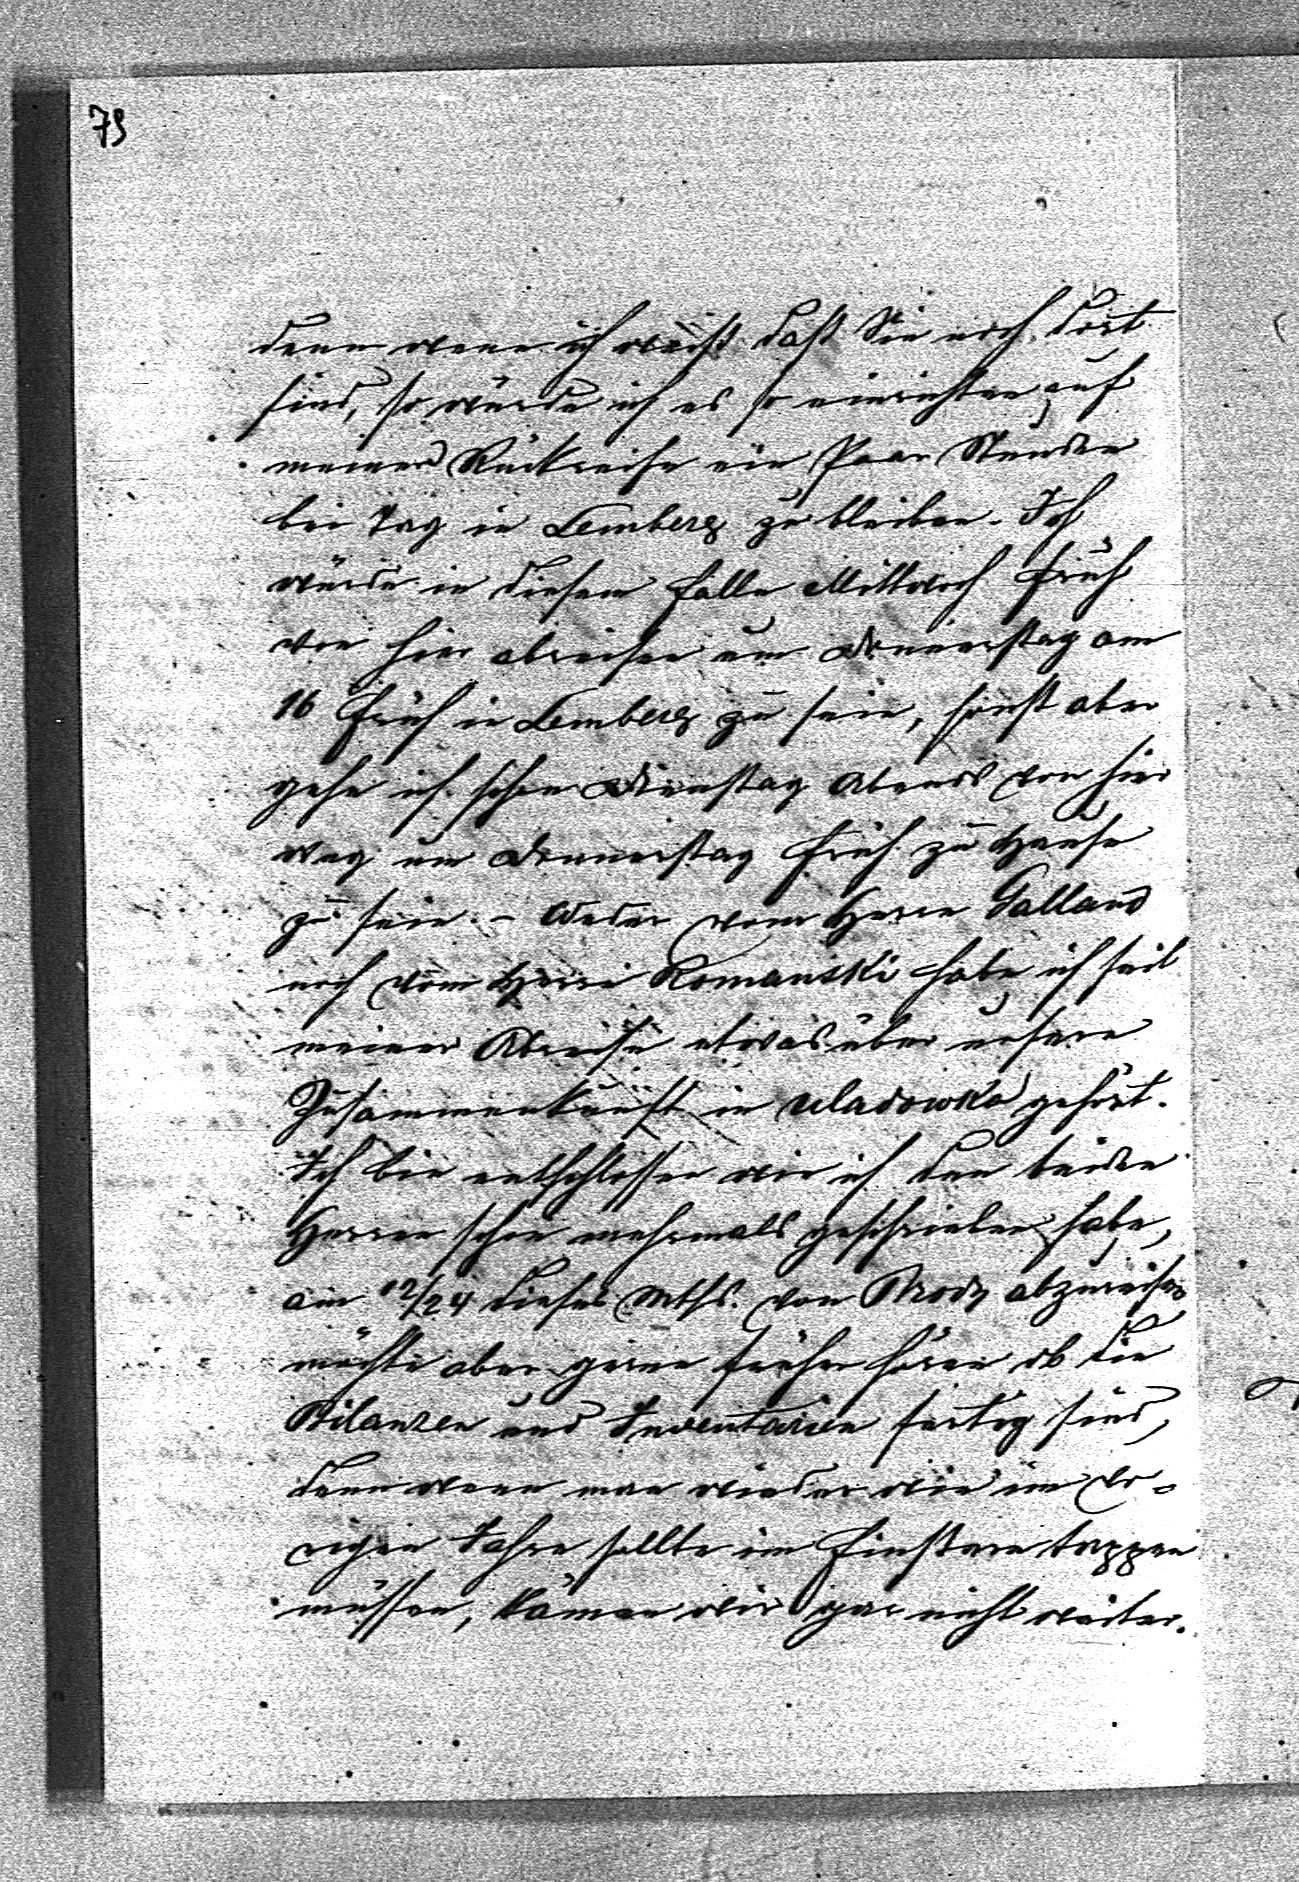 79
denn wenn ich weiß daß Sie noch dort
sind, so würde ich es so einrichten auf
meiner Rückreise ein Paar Stunden
bei Tag in Lemberg zu bleiben. Ich
würde in diesem Falle Mittwoch früh
von hier abreisen um Donnerstag am
16 früh in Lemberg zu sein, sonst aber
gehe ich schon Dienstag Abends von hier
weg um Donnerstag früh zu Hause
zu sein. – Weder vom Herrn Galland
noch vom Herrn Romanski habe ich seit
meiner Abreise etwas über unsere
Zusammenkunft in Uladowka gehört.
Ich bin entschlossen wie ich den beiden
Herren schon mehrmals geschrieben habe,
am 12/24 dieses Mths. von Brody abzureisen
möchte aber gerne früher hören ob die
Bilanzen und Inventarien fertig sind,
denn wenn man wieder wie im vo-
rigen Jahre sollte im Finstern tappen
müssen, kämen wir gar nicht weiter.